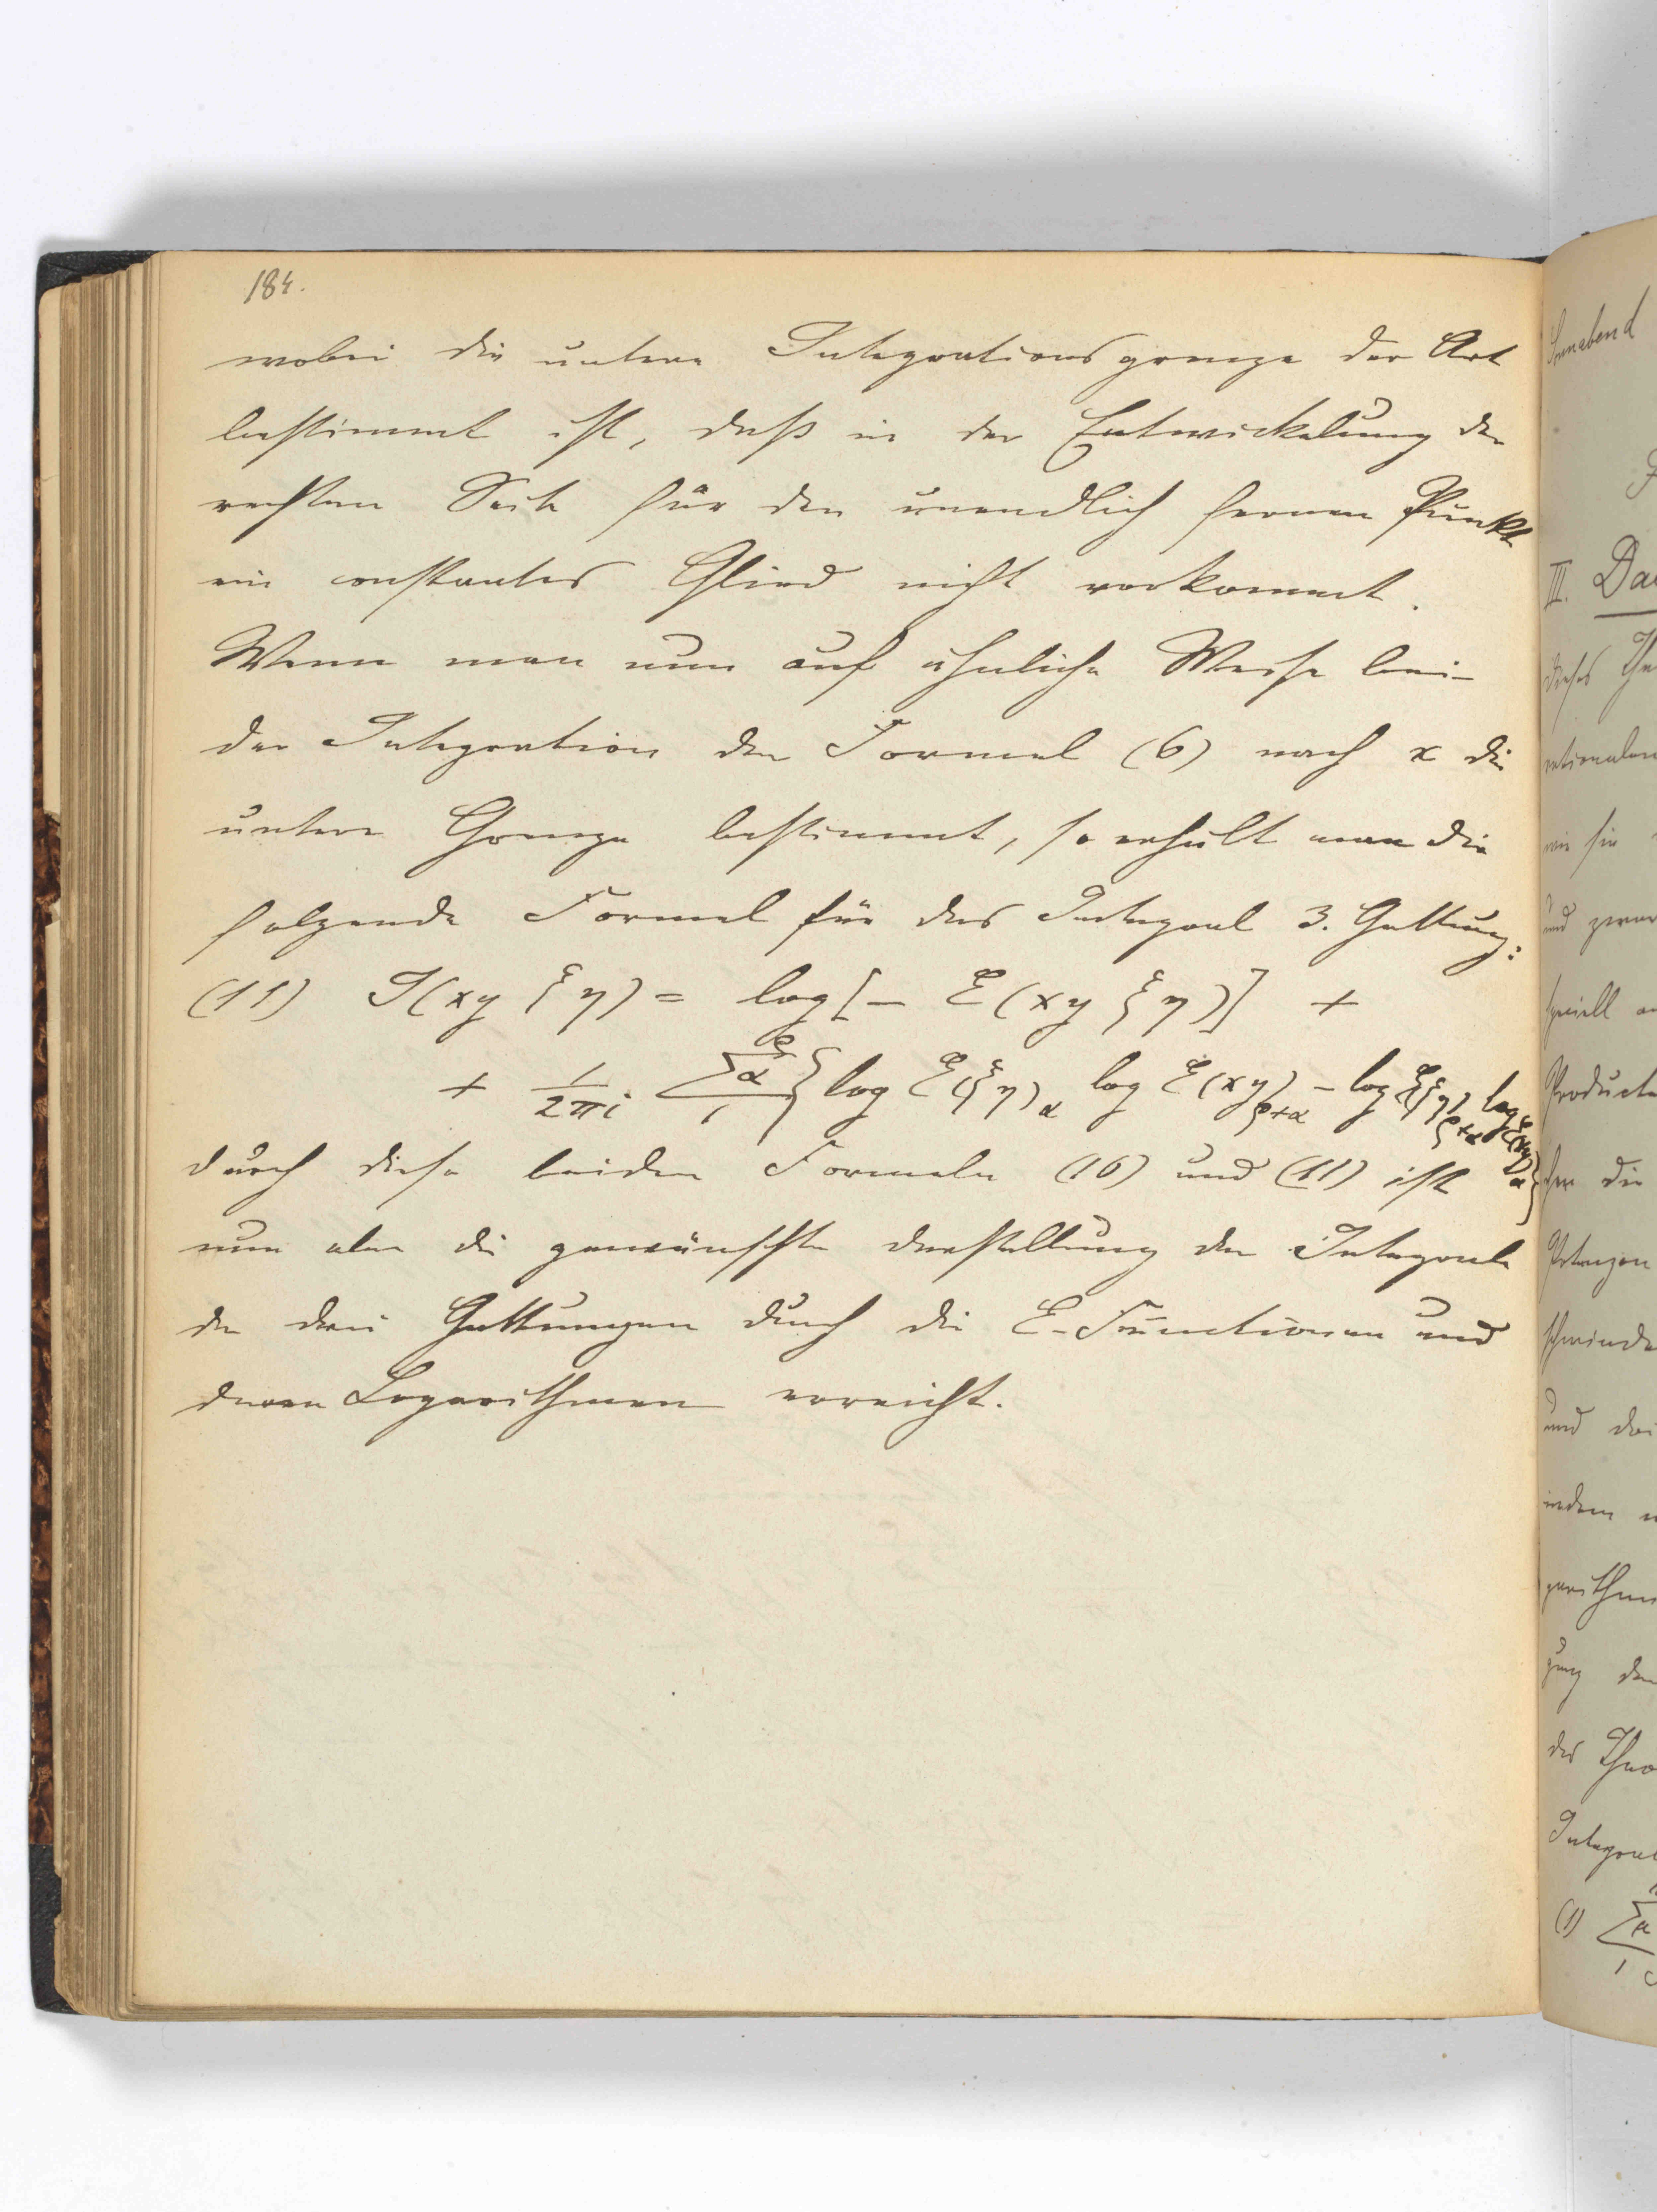 184.
wobei die untere Integrationsgrenze der Art
bestimmt ist, daß in der Entwickelung der
rechten Seite für den unendlich fernen Punkt
ein constantes Glied nicht vorkommt.
Wenn man nun auf ähnliche Weise bei-
der Integration der Formel (6) nach x die
untere Grenze bestimmt, so erhält man die
folgende Formel für das Integral 3. Gattung:
(11) J(xy ξη) = log[− E(xy ξη)] +
+ 1/2πi Σα {log E(ξη)α log E(xy)ρ+α − log E(ξη)ρ+α log E(xy)α}
durch diese beiden Formeln (10) und (11) ist
nun aber die gewünschte Darstellung der Integrale
der drei Gattungen durch die E-Functionen und
deren Logarithmen erreicht.
Sonnabend
III. Da
dieses The
rationalen
wie sie
und zwar
speciell
Producte
die
Potenzen
schwinde
und
indem
garithm
gung
des Theo
Integral
(1) Σα